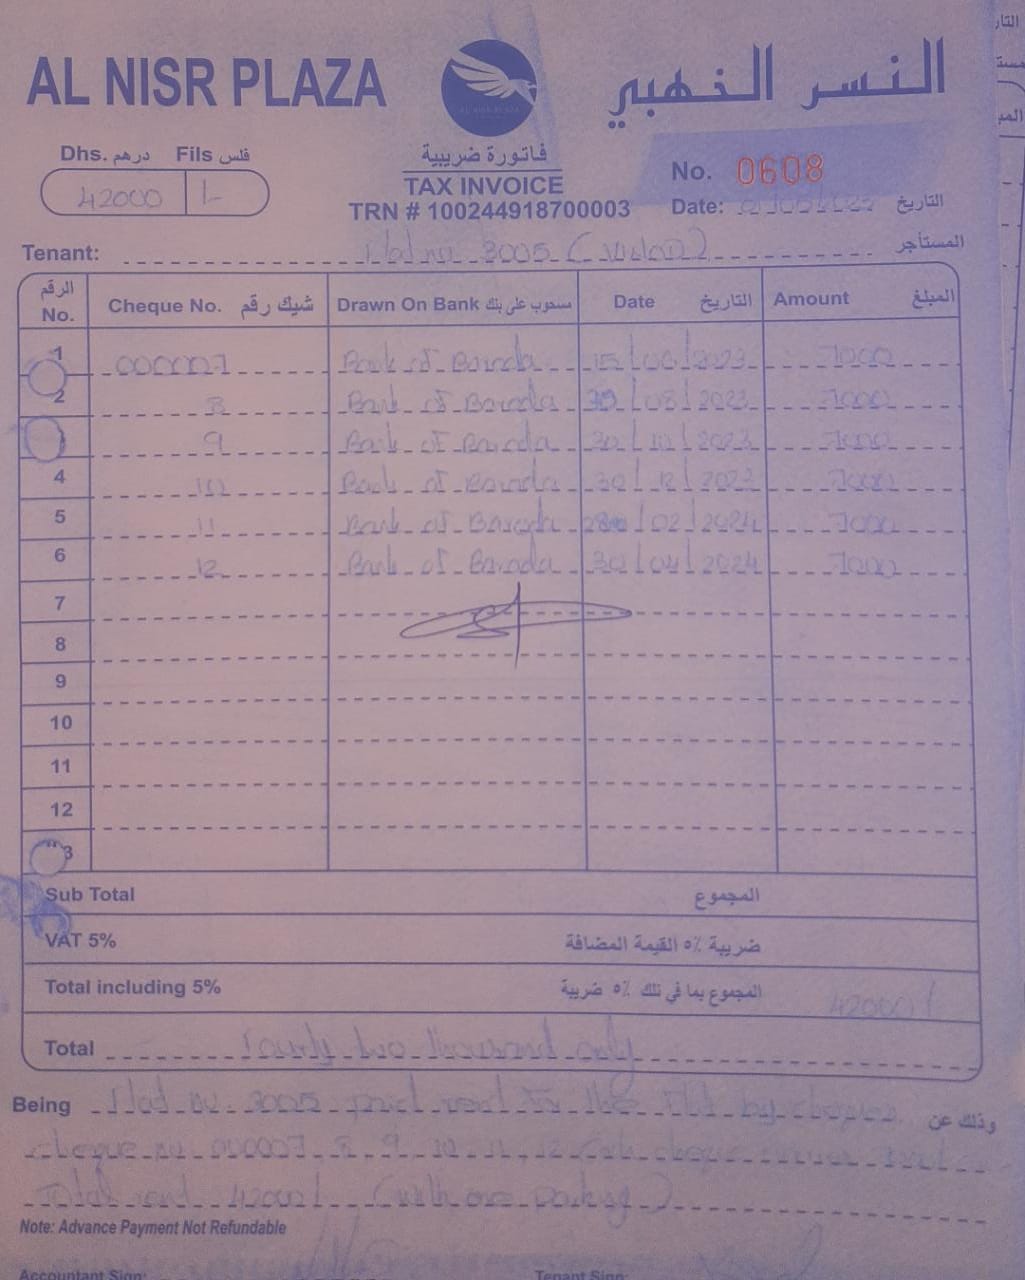 AL NISR PLAZA
النسر الذهبي
Dhs. درهم Fils فلس
42000 /-
فاتورة ضريبية
TAX INVOICE
TRN # 100244918700003
No. 0608
Date: التاريخ
Tenant: Flat no 3005 المستأجر
الرقم No. Cheque No. شيك رقم Drawn On Bank مسحوب على بنك Date التاريخ Amount المبلغ
1 000007 Bank of Baroda 15/06/2023 7000
2 8 Bank of Baroda 30/08/2023 7000
9 Bank of Baroda 30/10/2023 7000
4 10 Bank of Baroda 30/12/2023 7000
5 11 Bank of Baroda 28/02/2024 7000
6 12 Bank of Baroda 30/04/2024 7000
7
8
9
10
11
12
3
Sub Total المجموع
VAT 5% ضريبة ٥٪ القيمة المضافة
Total including 5% المجموع بما في تلك ٥٪ ضريبة 42000/
Total Fourty two thousand only
Being Flat no. 3005 paid rent to the by cheques وذلك عن
cheque no 000007, 8, 9, 10, 11, 12 cheque
Total rent 42000/ (with one parking)
Note: Advance Payment Not Refundable
Accountant Sign: Tenant Sign: